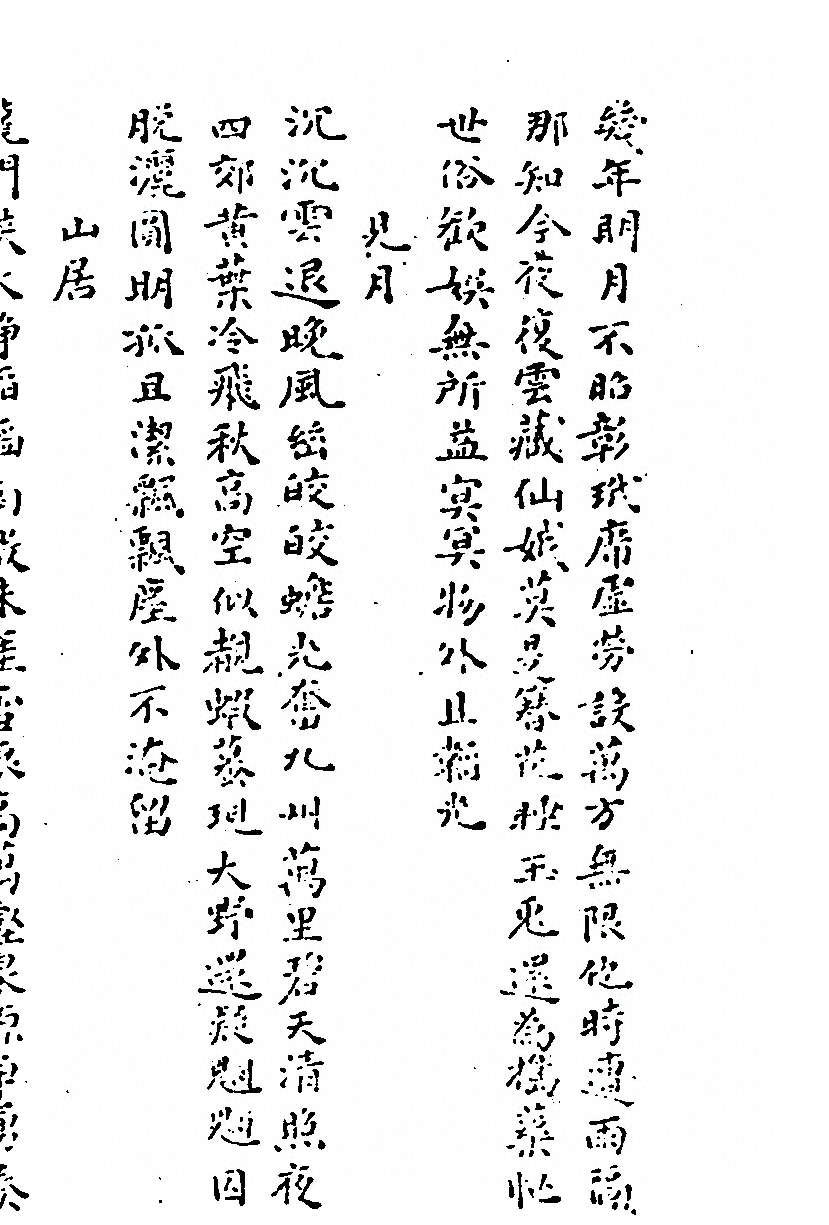 幾年明月不昭彰玳席虛勞設萬方無限他時遭雨
那知今夜復雲藏仙娥莫是簪花愁玉兔還為搗藥忙
世俗歡娛無所益冥冥物外且韜光
見月
沉沉雲退晚風幽皎皎蟾光奮九州萬里碧天清照夜
四郊黃葉冷飛秋高空似覩蝦蟇現大野還疑魍魎囚
脫灑圓明孤且潔飄飄塵外不淹留
山居